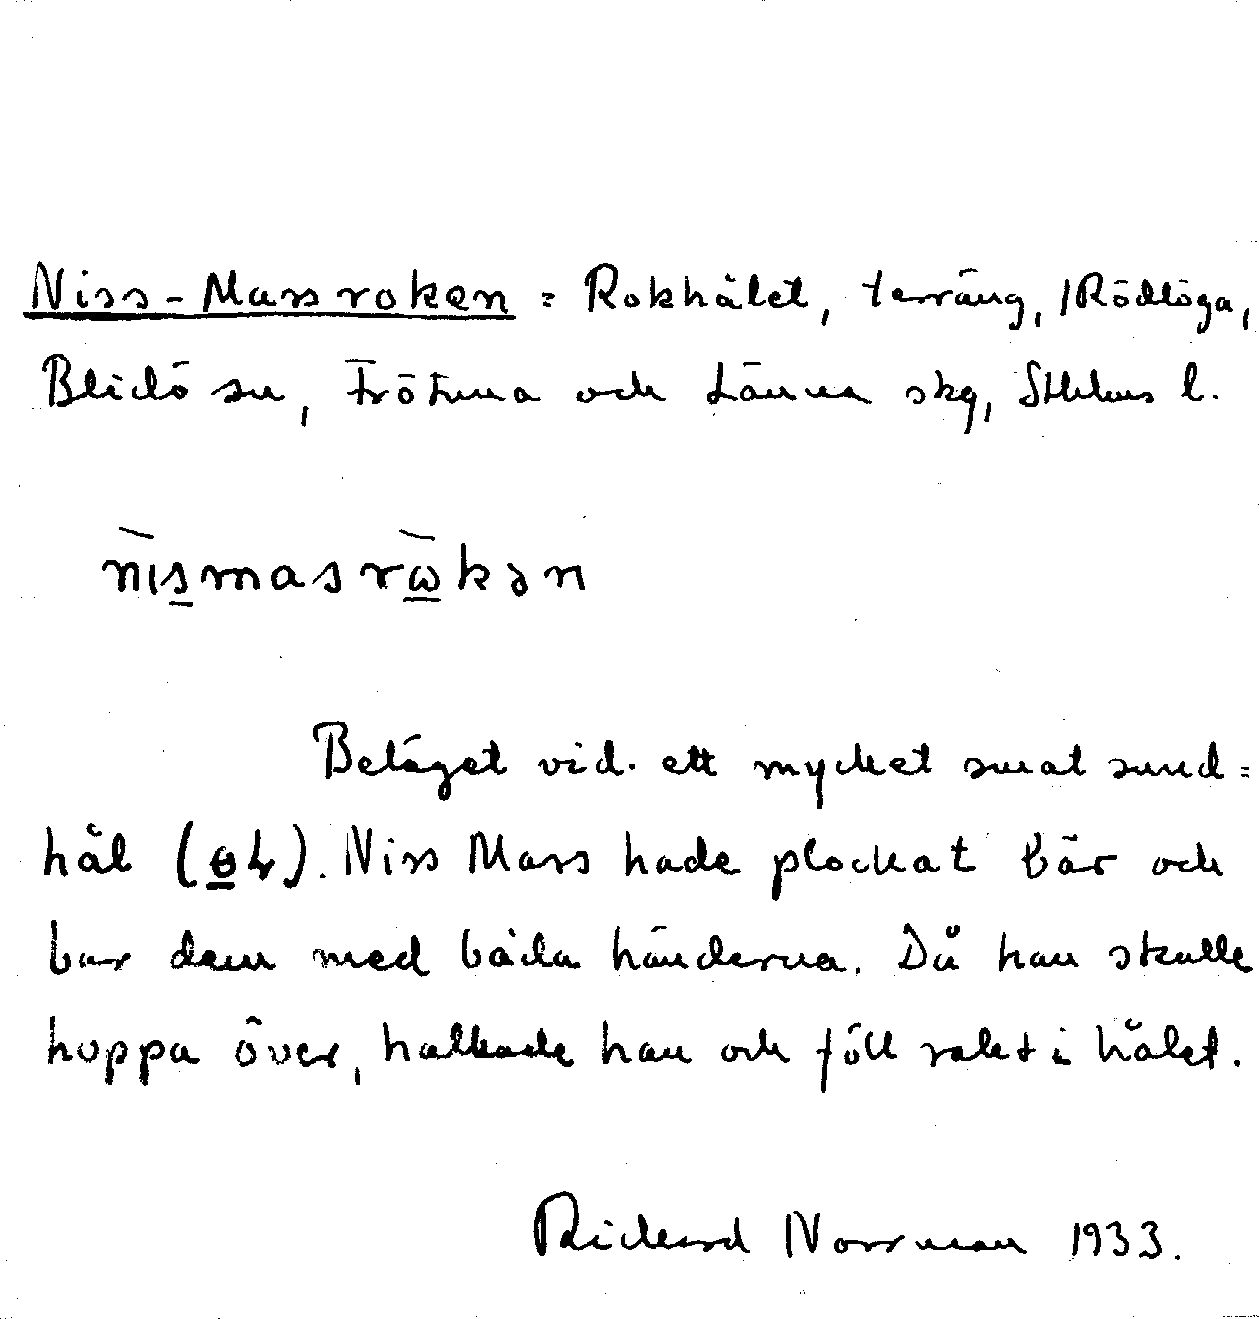 Niss-Massroken = Rokhålet, terräng, /Rödlöga,
Blidö sn, Frötuna och Länna skg, Sthlms l.
nismasrωkən
Beläget vid ett mycket smat sund=
hål (). Niss Mass hade plockat bär och
bar dem med båda händerna. Då han skulle
hoppa över, halkade han och föll rakt i hålet.
Rickard Norrman 1933.